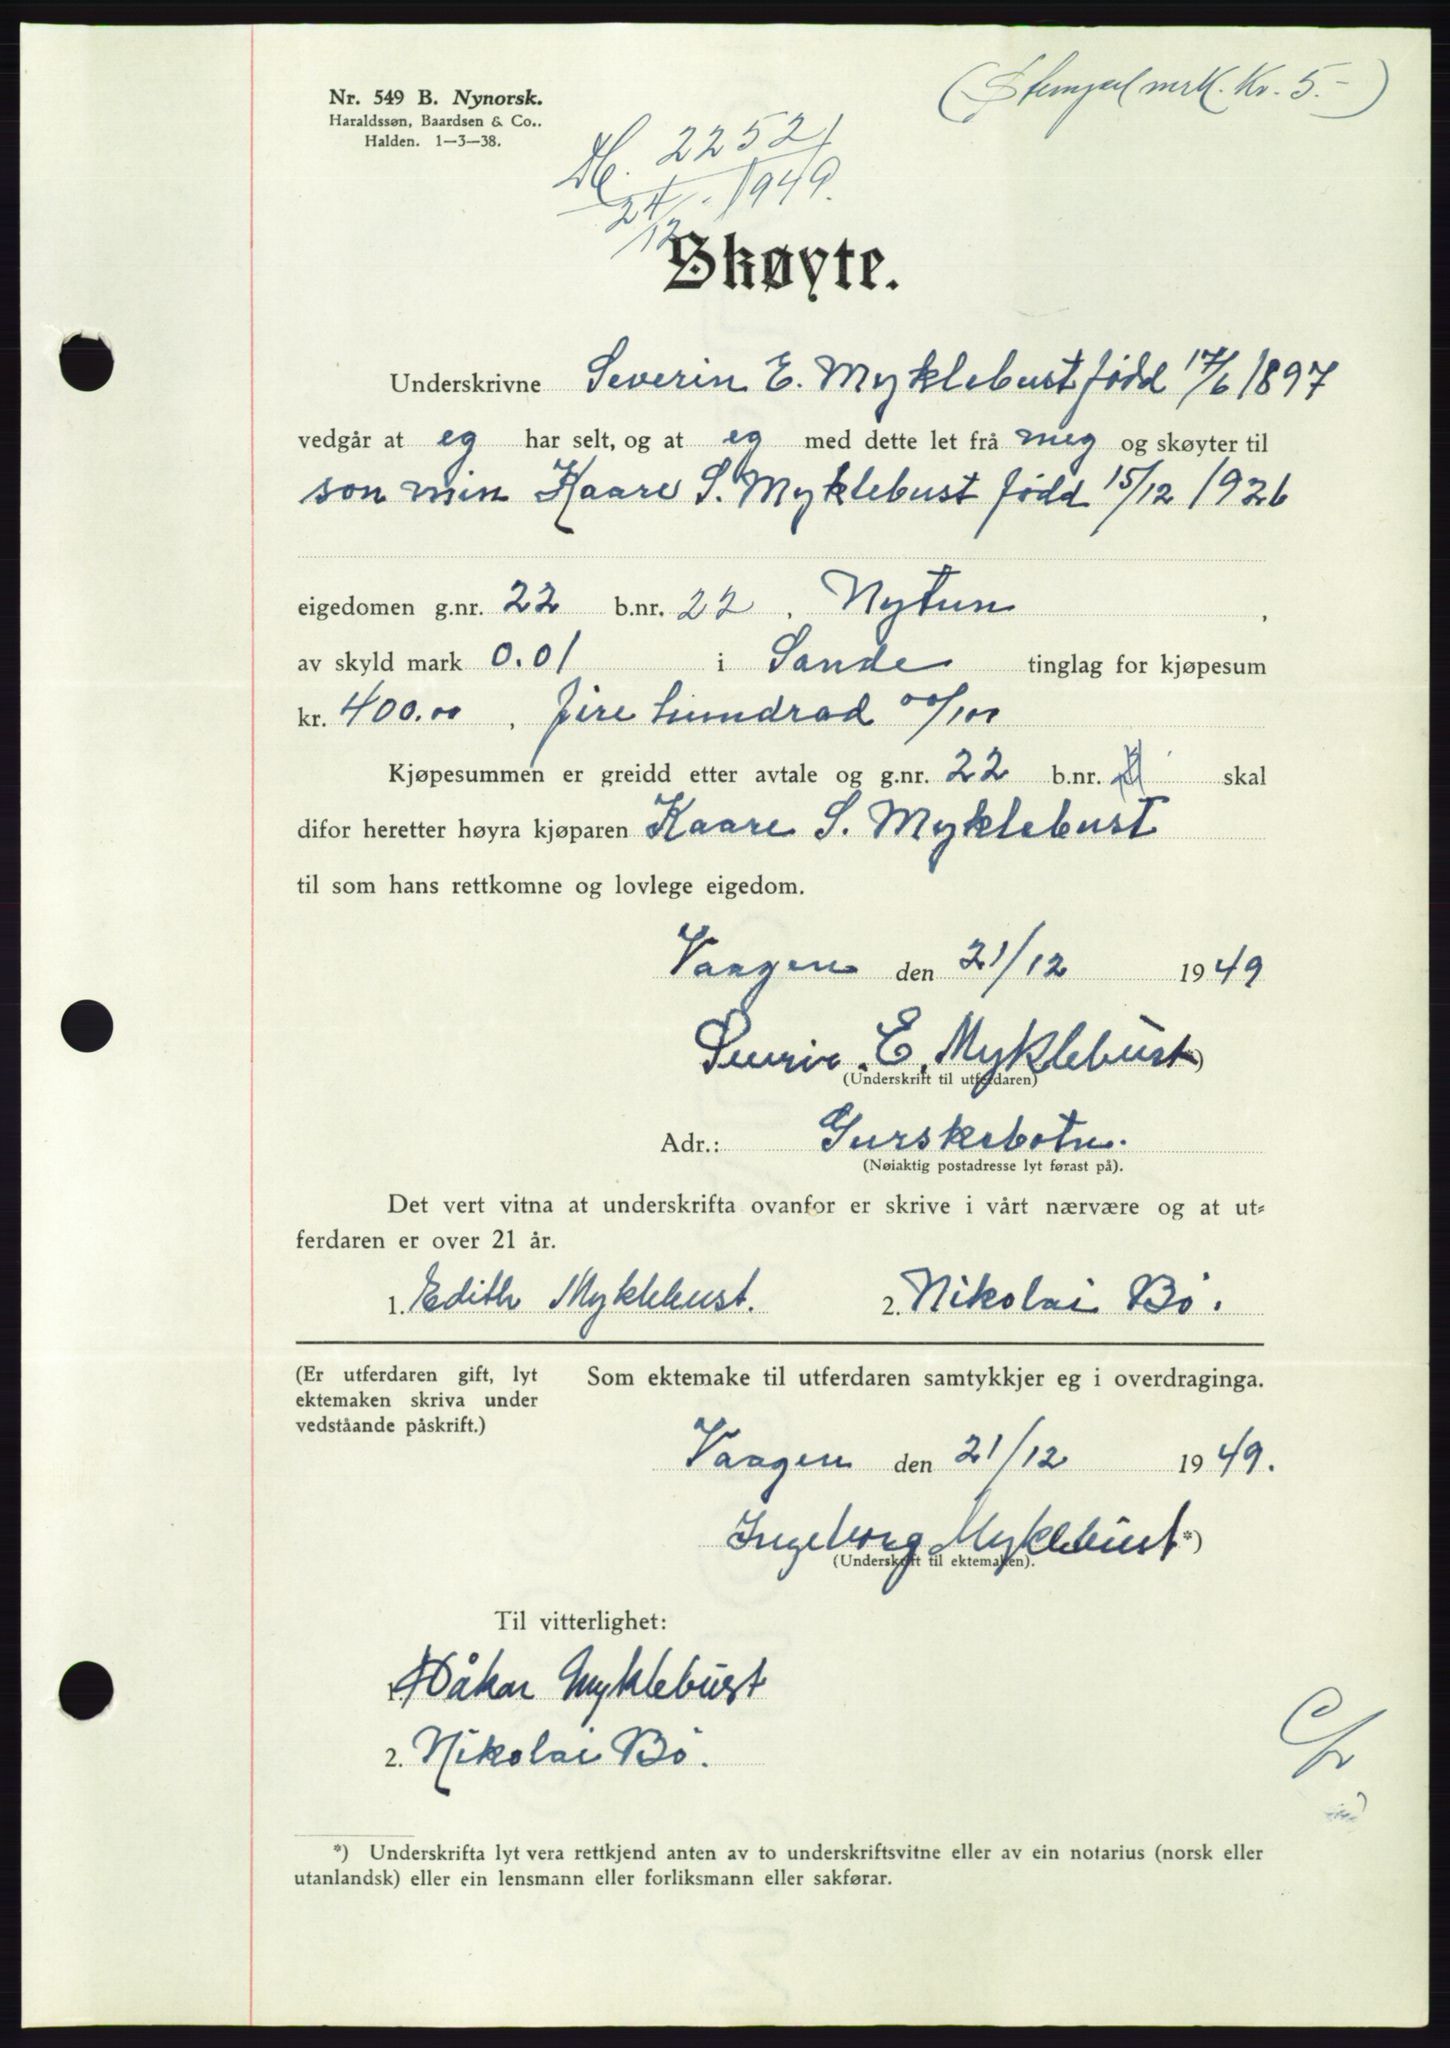 (Stempelmrk. Kr. 5.-)
Nr. 549 B. Nynorsk.
Haraldssøn, Baardsen & Co..
Halden. 1—3—38.
2252/1949.
24/12
Skøyte.
Underskrivne Severin E. Myklebust født 17/6 1897
vedgår at eg har selt, og at eg med dette let frå meg og skøyter til
son min Kaare S. Myklebust født 15/12 1926
eigedomen g.nr. 22 b.nr. 22, Nytun,
av skyld mark 0.01 i Sande tinglag for kjøpesum
kr. 400.00, fire hundrad 00/100
Kjøpesummen er greidd etter avtale og g.nr. 22 b.nr. skal
difor heretter høyra kjøparen Kaare S. Myklebust
til som hans rettkomne og lovlege eigedom.
Vaagen den 21/12 1949
Severin E. Myklebust *)
(Underskrift til utferdaren)
Adr.: Gurskebotn.
(Nøiaktig postadresse lyt førast på).
Det vert vitna at underskrifta ovanfor er skrive i vårt nærvære og at ut-
ferdaren er over 21 år.
1. Edith Myklebust. 2. Nikolai Bö.
(Er utferdaren gift, lyt
ektemaken skriva under
vedståande påskrift.)
Som ektemake til utferdaren samtykkjer eg i overdraginga.
Vaagen den 21/12 1949.
Ingeborg Myklebust *)
(Underskrift til ektemaken).
Til vitterlighet:
1. Håkon Myklebust
2. Nikolai Bö.
*) Underskrifta lyt vera rettkjend anten av to underskriftsvitne eller av ein notarius (norsk eller
utanlandsk) eller ein lensmann eller forliksmann eller sakførar.